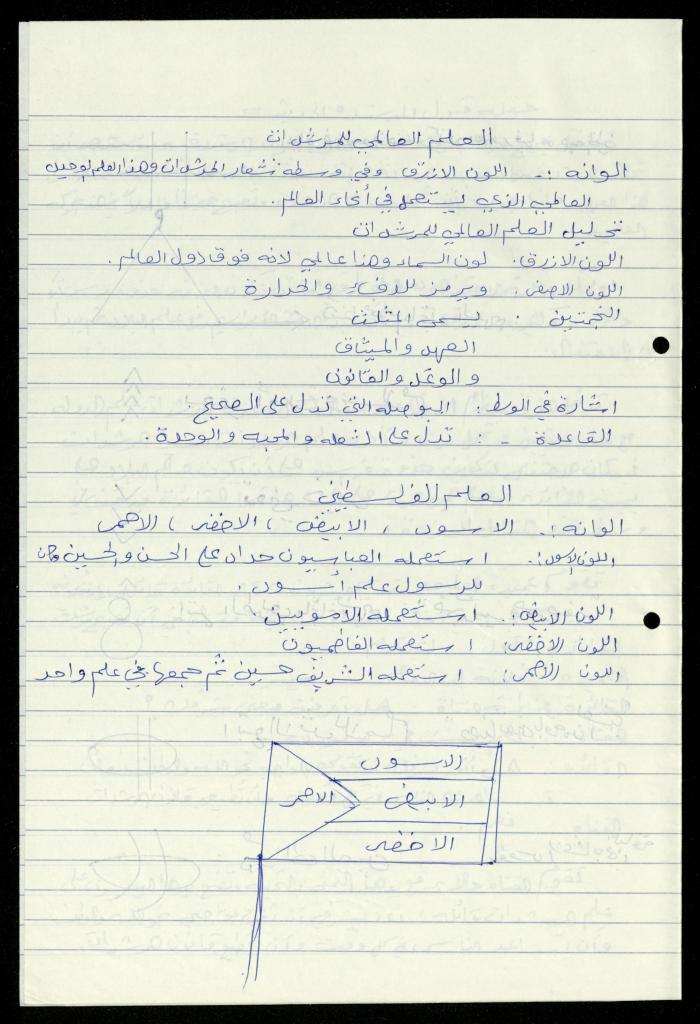 العلم العالمي للمرشدات
الوانه :- اللون الازرق. وفي وسطه شعار المرشدات وهذا العلم الوحيد
العالمي الذي يستعمل في أنحاء العالم.
تحليل العلم العالمي للمرشدات
اللون الازرق. لون السماء وهذا عالمي لانه فوق دول العالم.
اللون الاصفر: ويرمز للدفء والحرارة
النجمتين . يسمى المثلث
العهد والميثاق
و الوعد و القانون
اشارة في الوسط: البوصله التي تدل على الصحيح.
القاعدة -: تدل على الشعله و المحبه و الوحدة.
العلم الفلسطيني
الوانه:. الاسود , الابيض , الاخضر , الاحمر
اللون الاسود:. استعمله العباسيون حداد على الحسن والحسين وكان
للرسول علم أسود.
اللون الابيض:. استعمله الامويين.
اللون الاخضر: استعمله الفاطميون
اللون الاحمر: استعمله الشريف حسين ثم جمعها في علم واحد
الاسود
الابيض
الاحمر
الاخضر